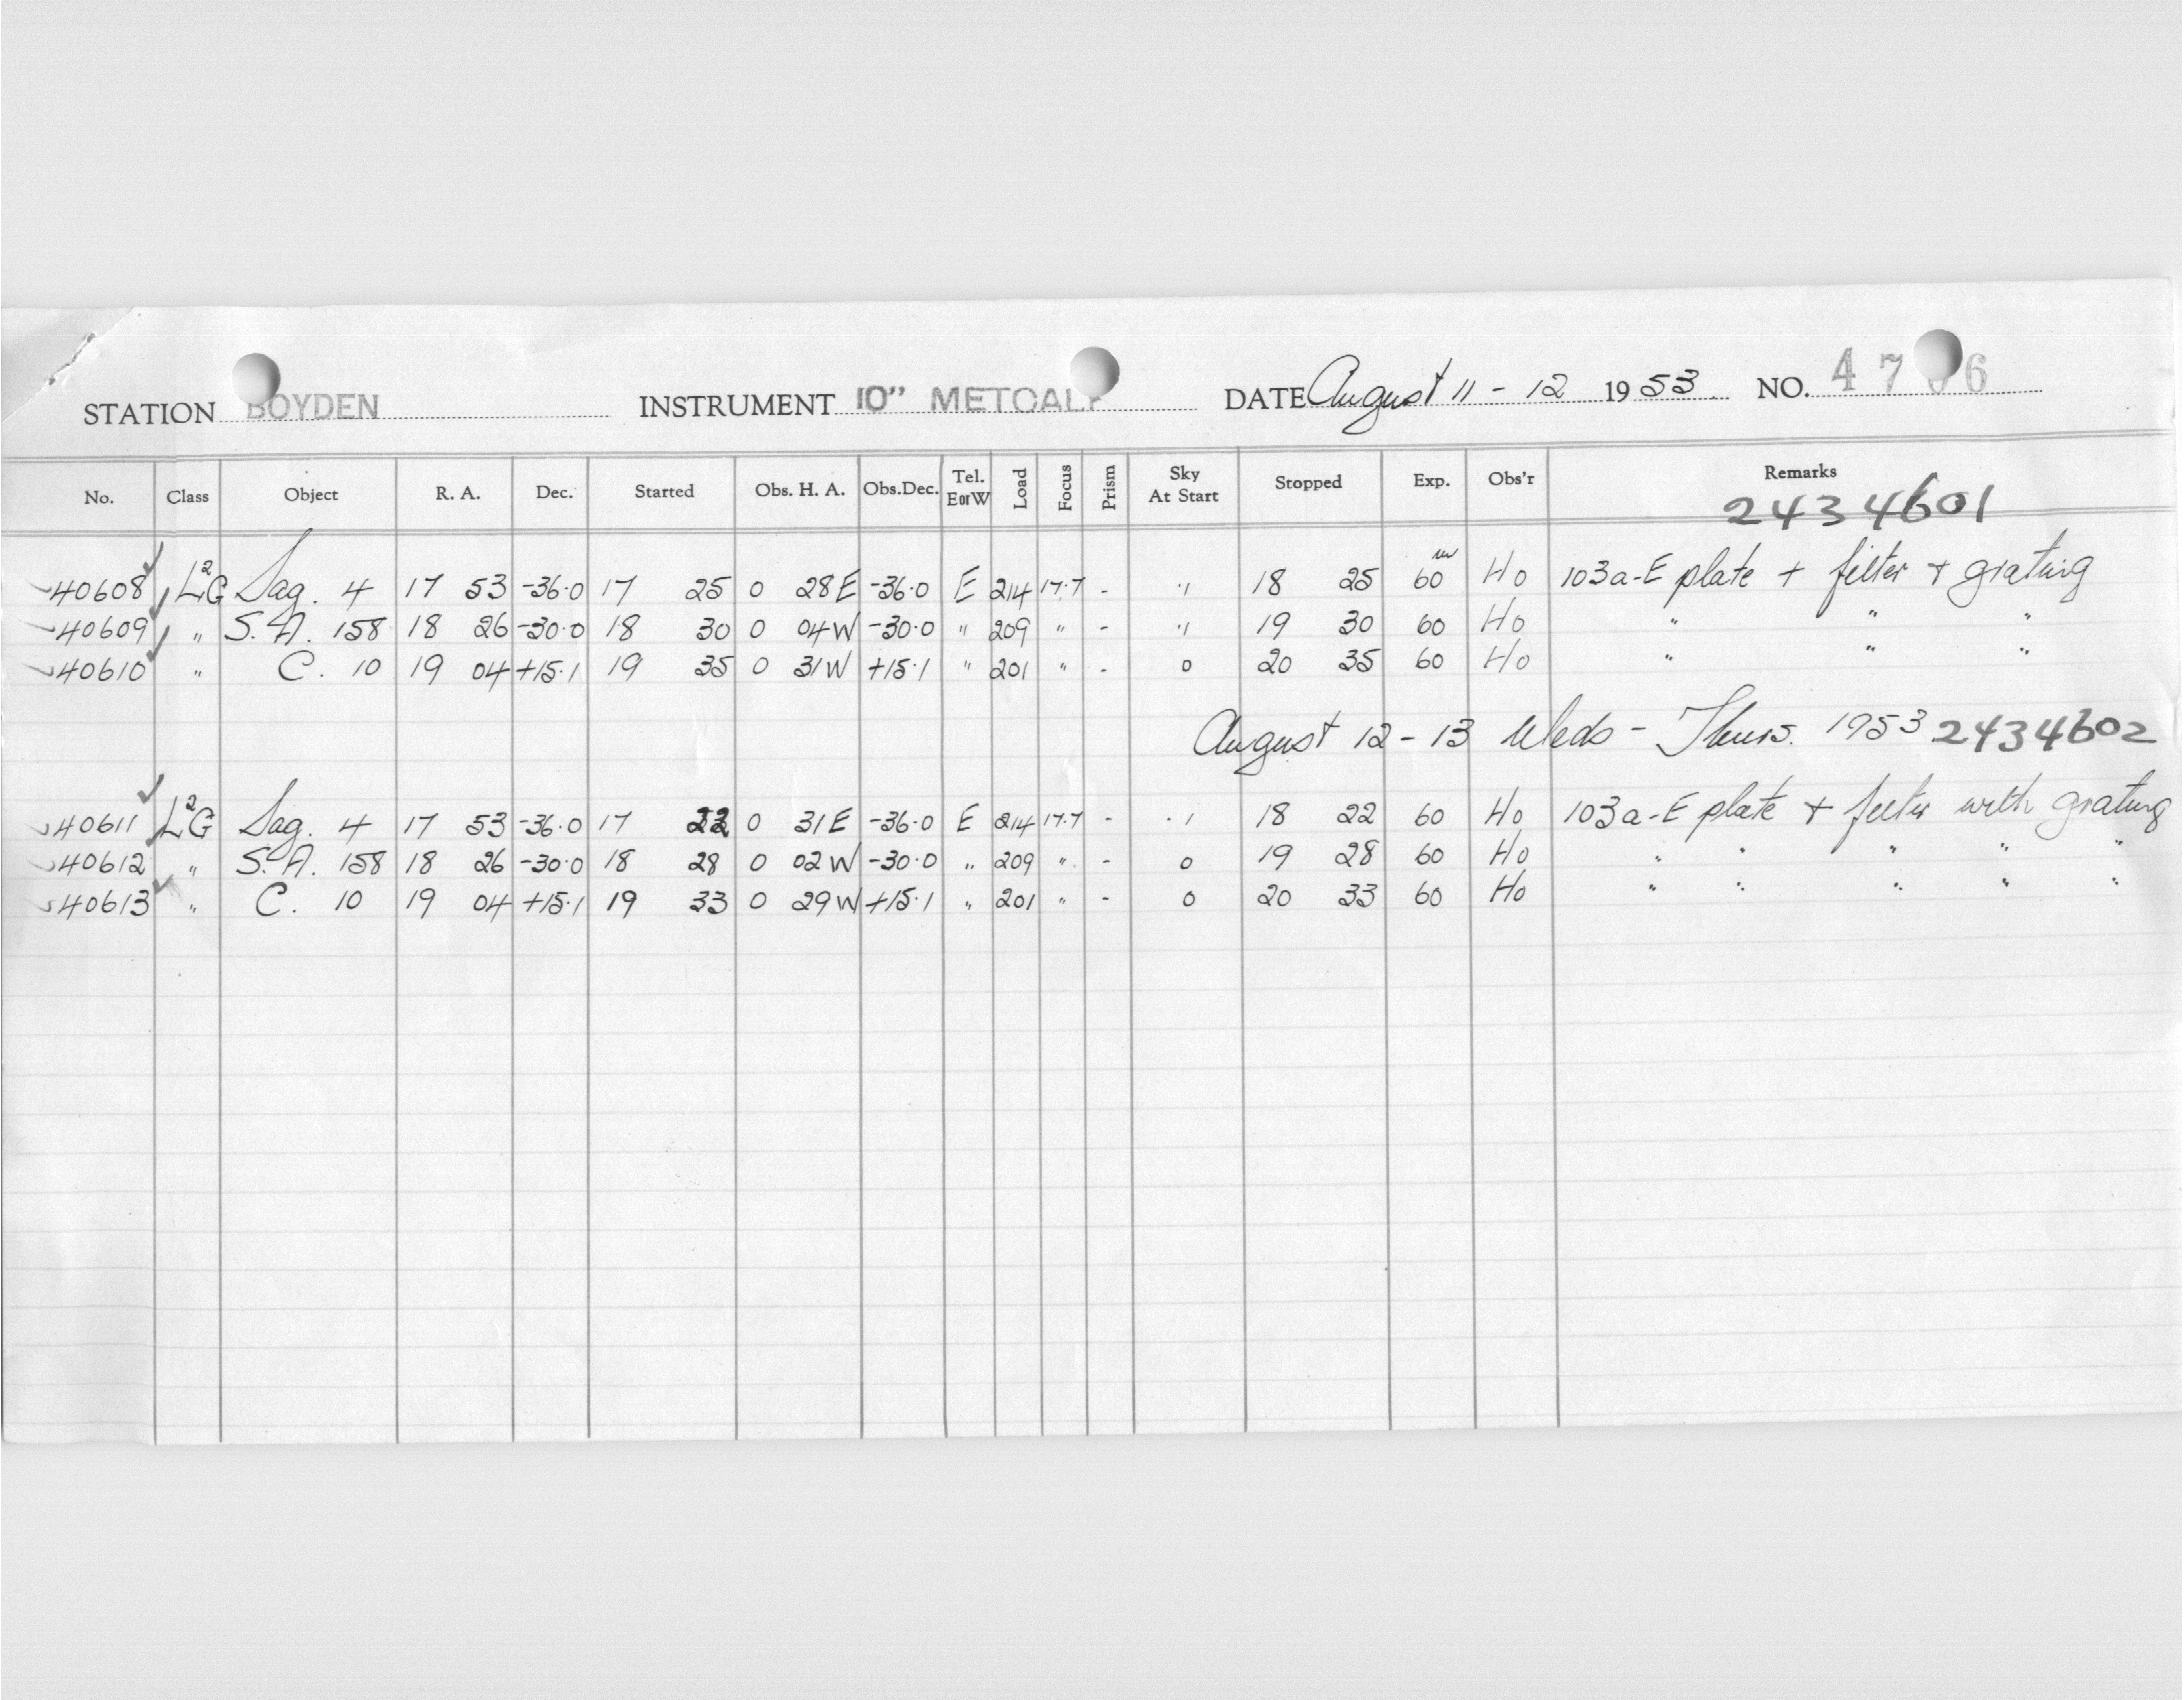 STATION BOYDEN INSTRUMENT 10" METCALF DATE August 11 - 12 1953 NO. 4706
No. Class Object R. A. Dec. Started Obs. H. A. Obs.Dec. Tel. E or W Load Focus Prism Sky At Start Stopped Exp. Obs'r Remarks
2434601
40608 L²G Sag. 4 17 53 -36.0 17 25 0 28E -36.0 E 214 17.7 - " 18 25 60 Ho 103a-E plate + filter + grating
40609 " S.A. 158 18 26 -30.0 18 30 0 04W -30.0 " 209 " - " 19 30 60 Ho " " "
40610 " C. 10 19 04 +15.1 19 35 0 31W +15.1 " 201 " - 0 20 35 60 Ho " " "
August 12 - 13 Weds - Thurs. 1953 2434602
40611 L²G Sag. 4 17 53 -36.0 17 22 0 31E -36.0 E 214 17.7 - .1 18 22 60 Ho 103a-E plate + filter with grating
40612 " S.A. 158 18 26 -30.0 18 28 0 02W -30.0 " 209 " - 0 19 28 60 Ho " " " " "
40613 " C. 10 19 04 +15.1 19 33 0 29W +15.1 " 201 " - 0 20 33 60 Ho " " " " "